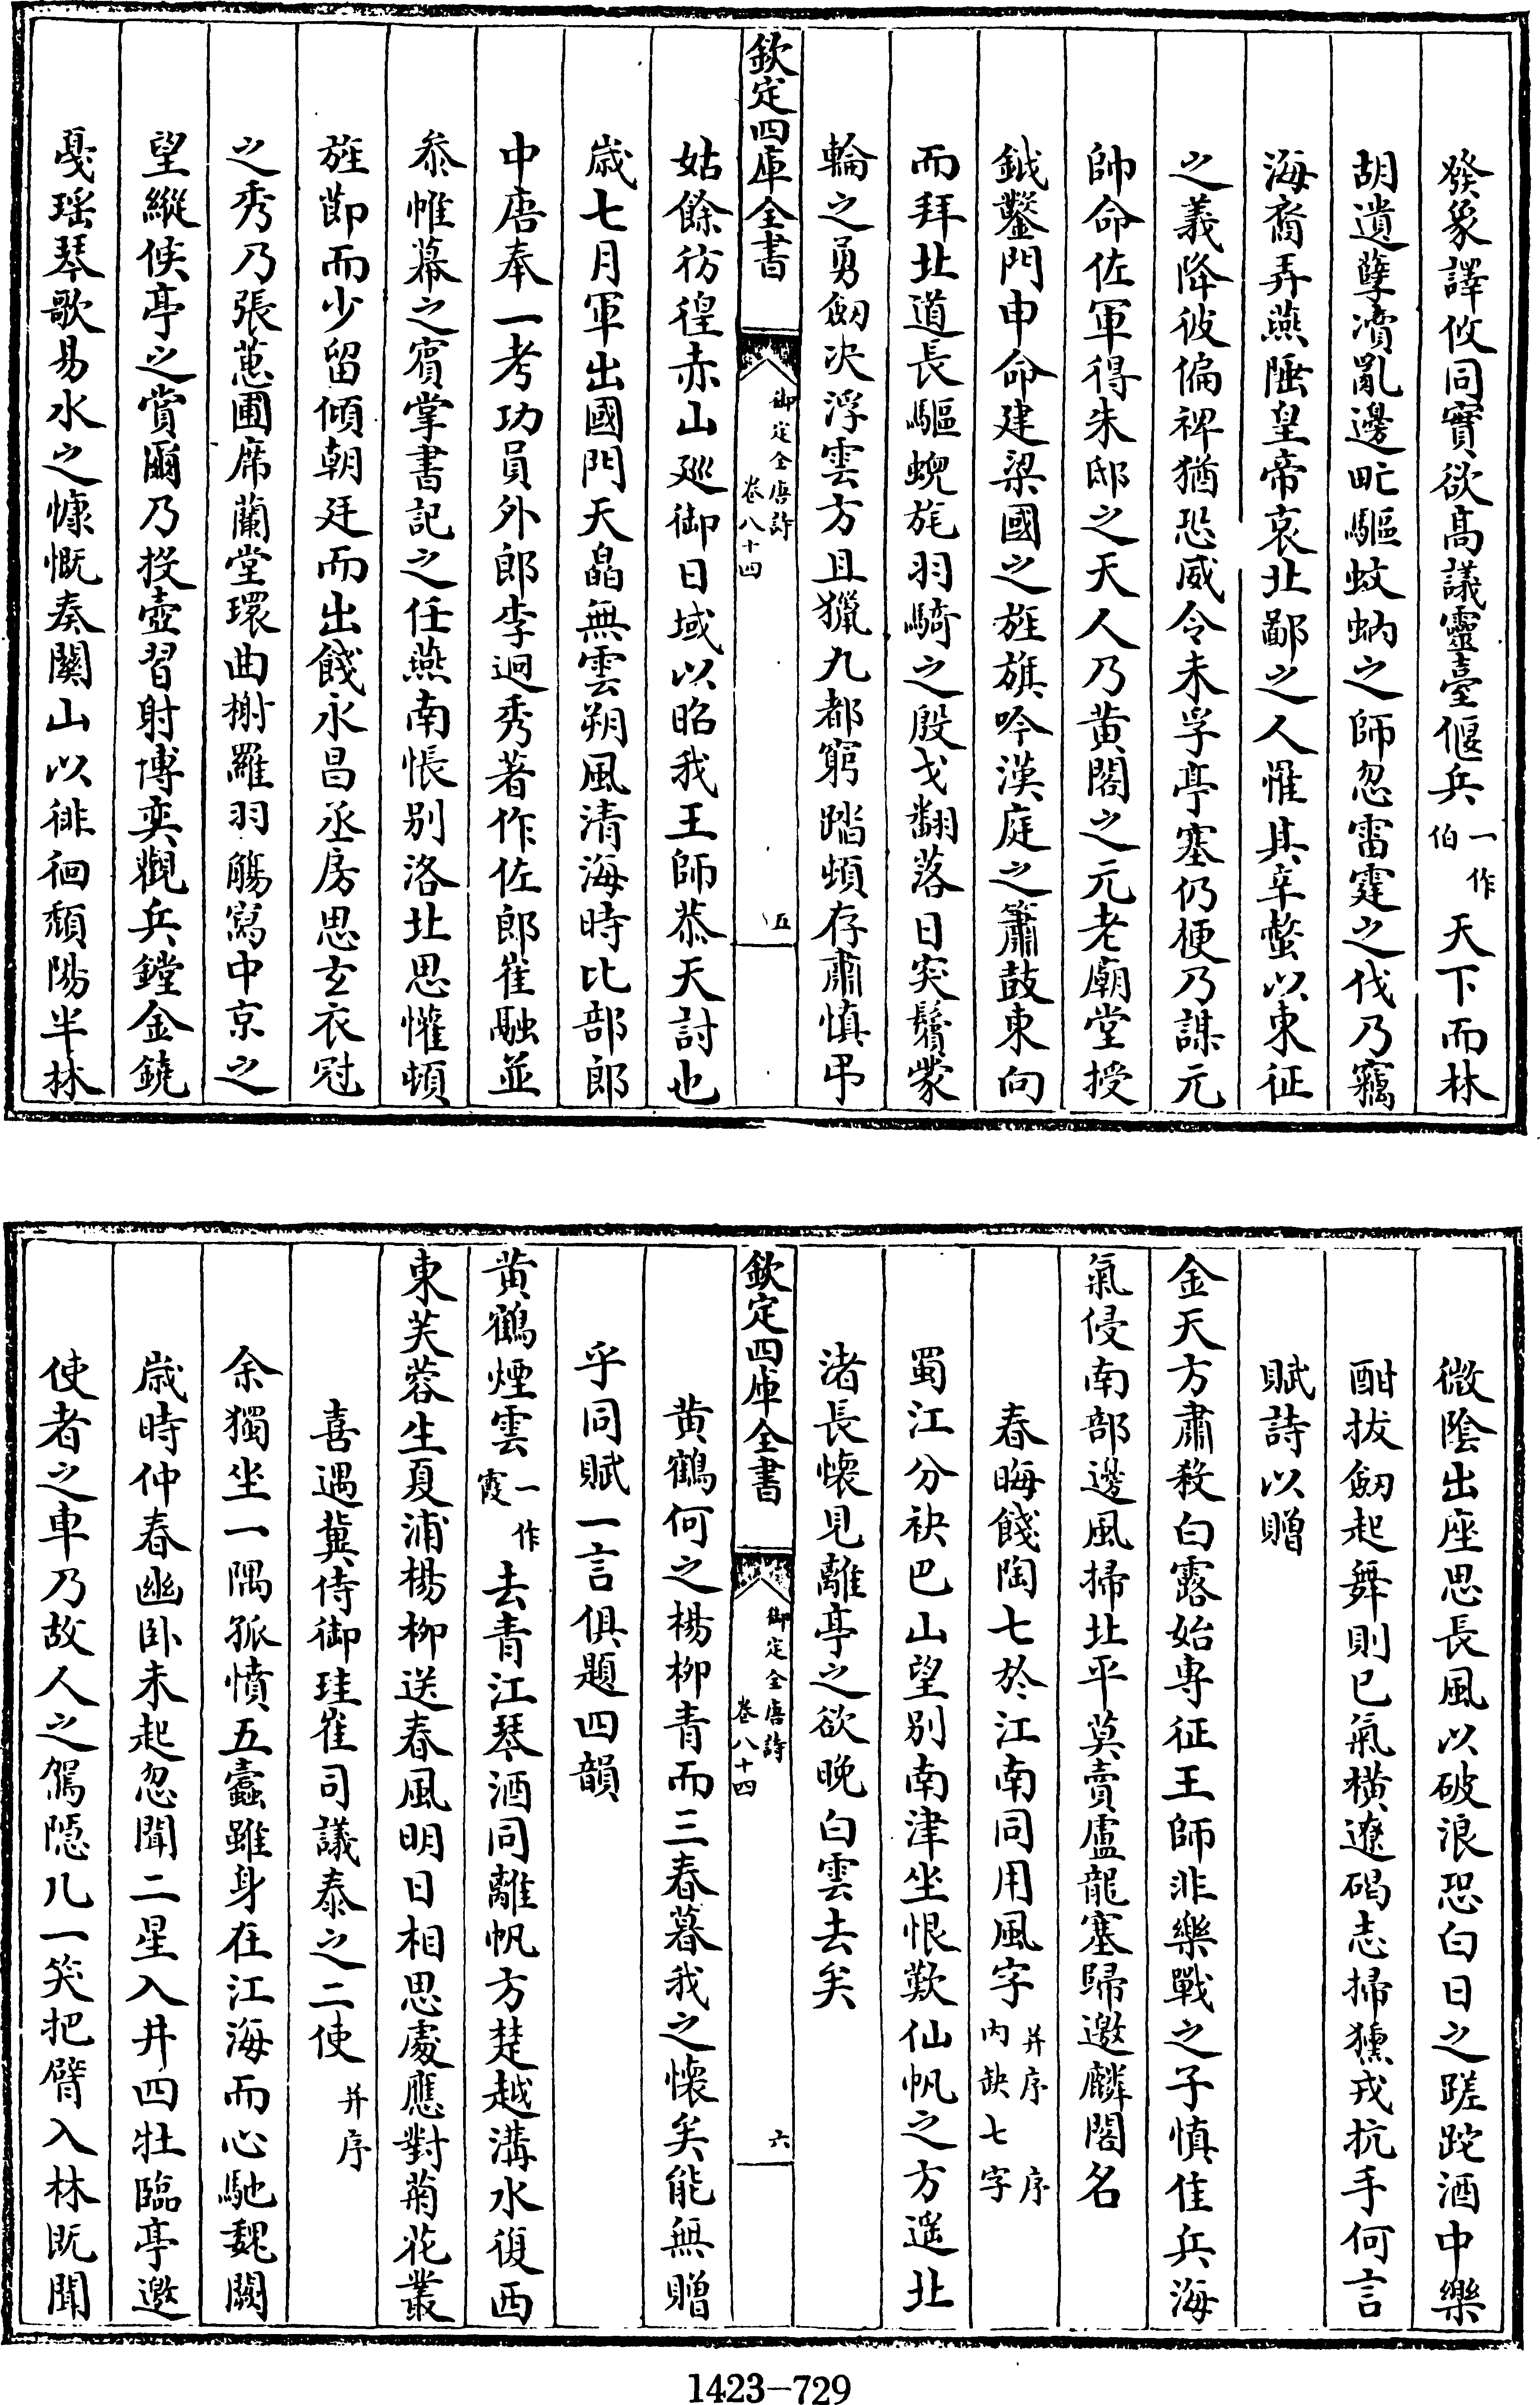 發象譯攸同實欲高議靈臺偃兵一作伯天下而林
胡遺孽瀆亂邊甿驅蚊蚋之師忽雷霆之伐乃竊
海裔弄燕陲皇帝哀北鄙之人罹其辛螫以東征
之義降彼偏裨猶恐威令未孚亭塞仍梗乃謀元
帥命佐軍得朱邸之天人乃黄閣之元老廟堂授
鉞鑿門申命建梁國之旌旗吟漢庭之簫鼓東向
而拜北道長驅蜺旄羽騎之殷戈翻落日突鬢蒙
輪之勇劒決浮雲方且獵九都窮踏頓存肅慎弔
欽定四庫全書
御定全唐詩
卷八十四
五
姑餘彷徨赤山廵御日域以昭我王師恭天討也
歲七月軍出國門天皛無雲朔風清海時比部郎
中唐奉一考功員外郎李迥秀著作佐郎崔融並
叅帷幕之賓掌書記之任燕南悵别洛北思懽頓
旌節而少留傾朝廷而出餞永昌丞房思玄衣冠
之秀乃張蕙圃席蘭堂環曲榭羅羽觴寫中京之
望縱候亭之賞爾乃投壺習射博奕觀兵鏜金鐃
戛瑶琴歌易水之慷慨奏關山以徘徊頽陽半林
微陰出座思長風以破浪恐白日之蹉跎酒中樂
酣拔劒起舞則已氣横遼碣志掃獯戎抗手何言
賦詩以贈
金天方肅殺白露始專征王師非樂戰之子慎佳兵海
氣侵南部邊風掃北平莫賣盧龍塞歸邀麟閣名
春晦餞陶七於江南同用風字并序序内缺七字
蜀江分袂巴山望别南津坐恨歎仙帆之方遥北
渚長懷見離亭之欲晚白雲去矣
欽定四庫全書
御定全唐詩
卷八十四
六
黄鶴何之楊柳青而三春暮我之懷矣能無贈
乎同賦一言俱題四韻
黄鶴煙雲一作霞去青江琴酒同離帆方楚越溝水復西
東芙蓉生夏浦楊柳送春風明日相思處應對菊花叢
喜遇冀侍御珪崔司議泰之二使并序
余獨坐一隅孤憤五蠹雖身在江海而心馳魏闕
歲時仲春幽卧未起忽聞二星入井四牡臨亭邀
使者之車乃故人之駕隠几一笑把臂入林既聞
1423-729